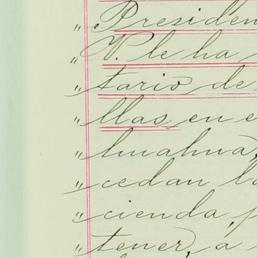 „ Presiden
„ V. le ha
„ tario de
„ llas en e
„ huahua,
„ cedan la
„ cienda p
„ tener, a